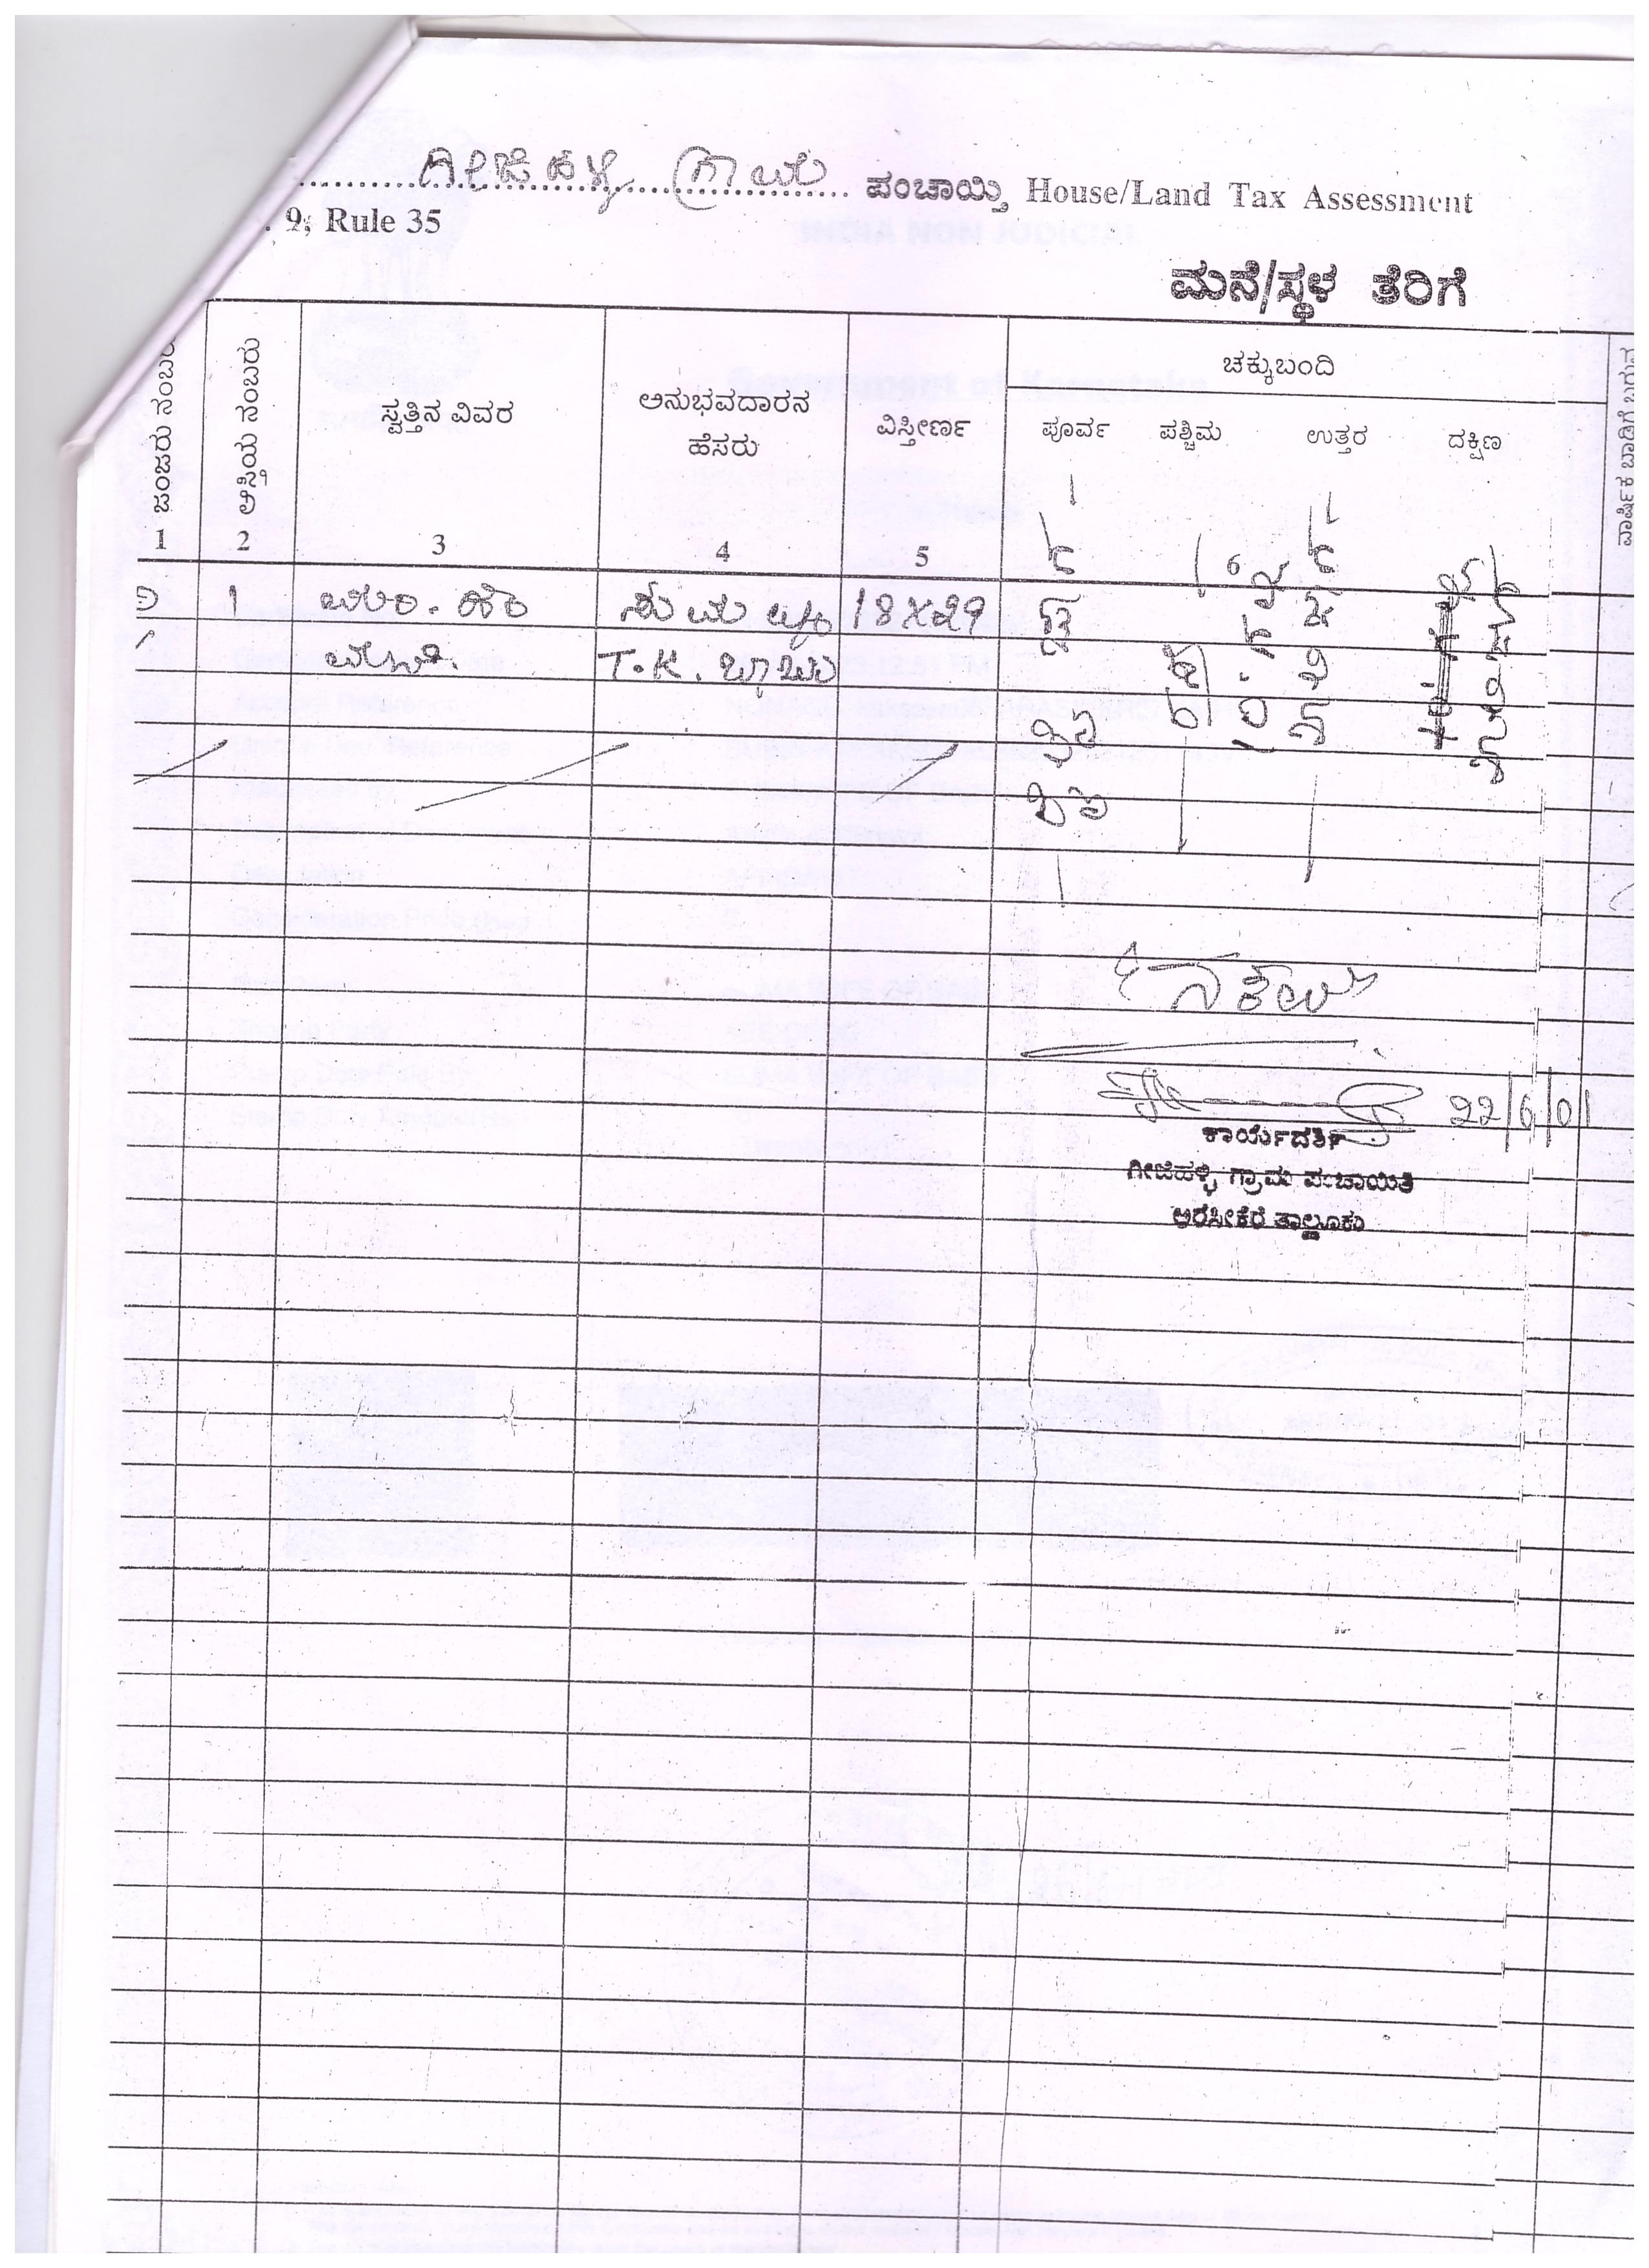 ಗೀಜಿಹಳ್ಳಿ ಗ್ರಾಮ ಪಂಚಾಯ್ತಿ House/Land Tax Assessment
. 9, Rule 35
ಮನೆ/ಸ್ಥಳ ತೆರಿಗೆ
ಜಂಜರು ನಂಬರು
ಆಸ್ತಿಯ ನಂಬರು
ಸ್ವತ್ತಿನ ವಿವರ
ಅನುಭವದಾರನ
ಹೆಸರು
ವಿಸ್ತೀರ್ಣ
ಚಕ್ಕುಬಂದಿ
ಪೂರ್ವ ಪಶ್ಚಿಮ ಉತ್ತರ ದಕ್ಷಿಣ
ವಾರ್ಷಿಕ ಬಾಡಿಗೆ ಬರುವ
1 2 3 4 5
1 ಮಂ. ಹೆಂ ಸುಮ 18X29
ಮನೆ. T.K. ಬಾಬು
"ನಕಲು"
22/6/01
ಕಾರ್ಯದರ್ಶಿ
ಗೀಜಿಹಳ್ಳಿ ಗ್ರಾಮ ಪಂಚಾಯಿತಿ
ಅರಸೀಕೆರೆ ತಾಲ್ಲೂಕು